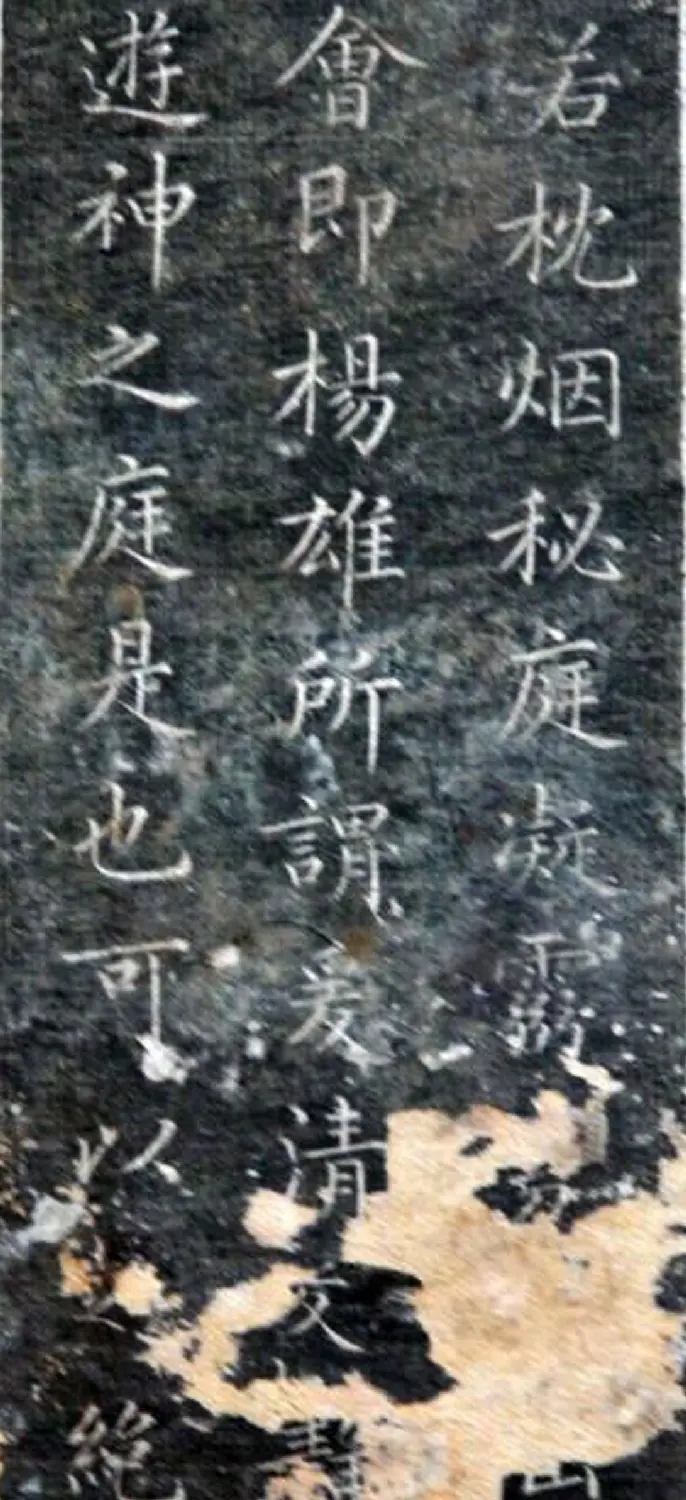 若枕烟秘庭凝霛
會即楊雄所謂爰清爰靜
遊神之庭是也可以絶